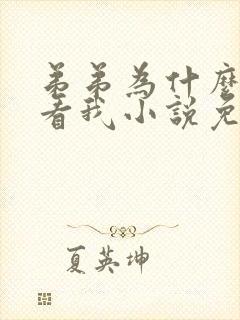 弟弟為什麼
看我小説免
夏英坤